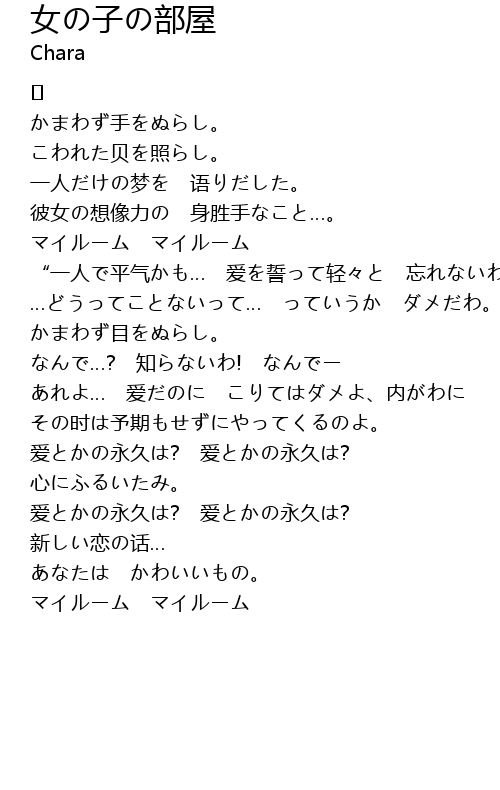 女の子の部屋
Chara
[]
かまわず手をぬらし。
こわれた贝を照らし。
一人だけの梦を　语りだした。
彼女の想像力の　身胜手なこと…。
マイルーム　マイルーム
“一人で平气かも…　爱を誓って轻々と　忘れないわ
…どうってことないって…　っていうか　ダメだわ。
かまわず目をぬらし。
なんで…?　知らないわ!　なんでー
あれよ…　爱だのに　こりてはダメよ、内がわに
その时は予期もせずにやってくるのよ。
爱とかの永久は?　爱とかの永久は?
心にふるいたみ。
爱とかの永久は?　爱とかの永久は?
新しい恋の话…
あなたは　かわいいもの。
マイルーム　マイルーム